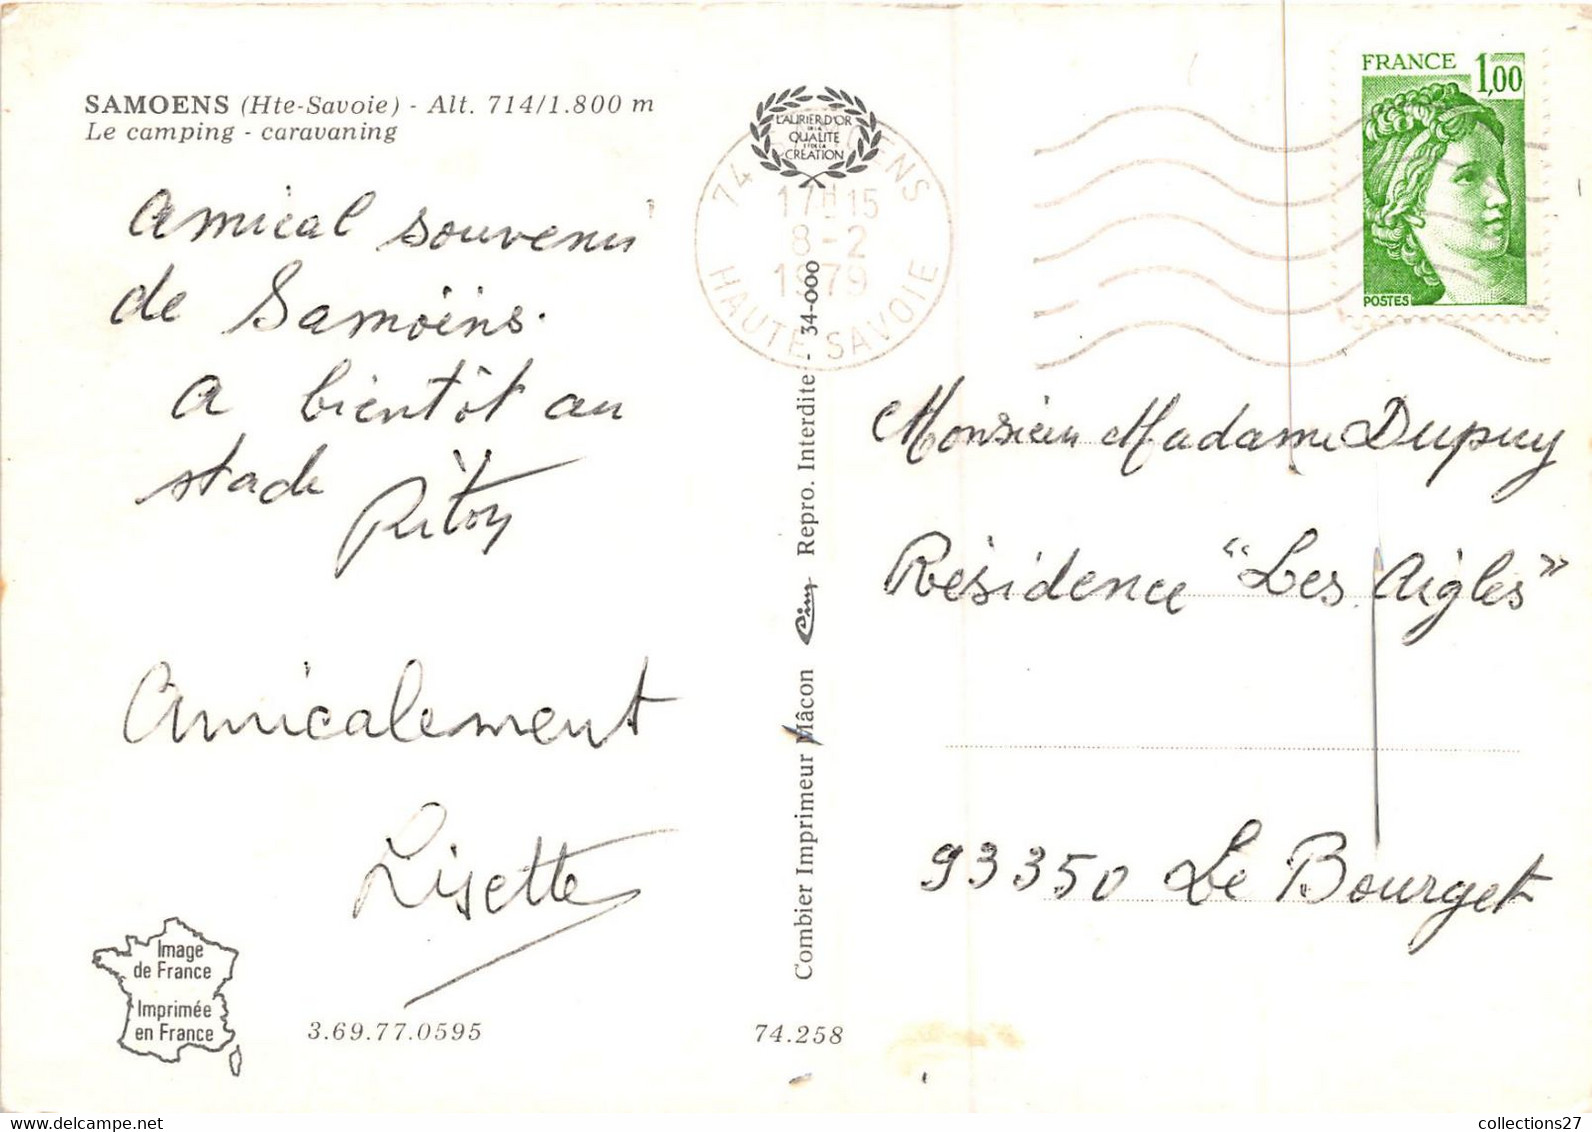 SAMOENS (Hte-Savoie) - Alt. 714/1.800 m
Le camping - caravaning
Amical souvenir
de Samoëns.
A bientôt au
stade
Amicalement
Lisette
Image
de France
Imprimée
en France
3.69.77.0595
74.258
LAURIER D'OR
DE LA
QUALITE
ET DE LA
CREATION
74 SAMOENS
17H15
8-2
1979
HAUTE SAVOIE
Combier Imprimeur Mâcon Cim Repro. Interdite - 34-000
FRANCE 1,00
POSTES
Monsieur Madame Dupuy
Résidence "Les Aigles"
93350 Le Bourget
collections27